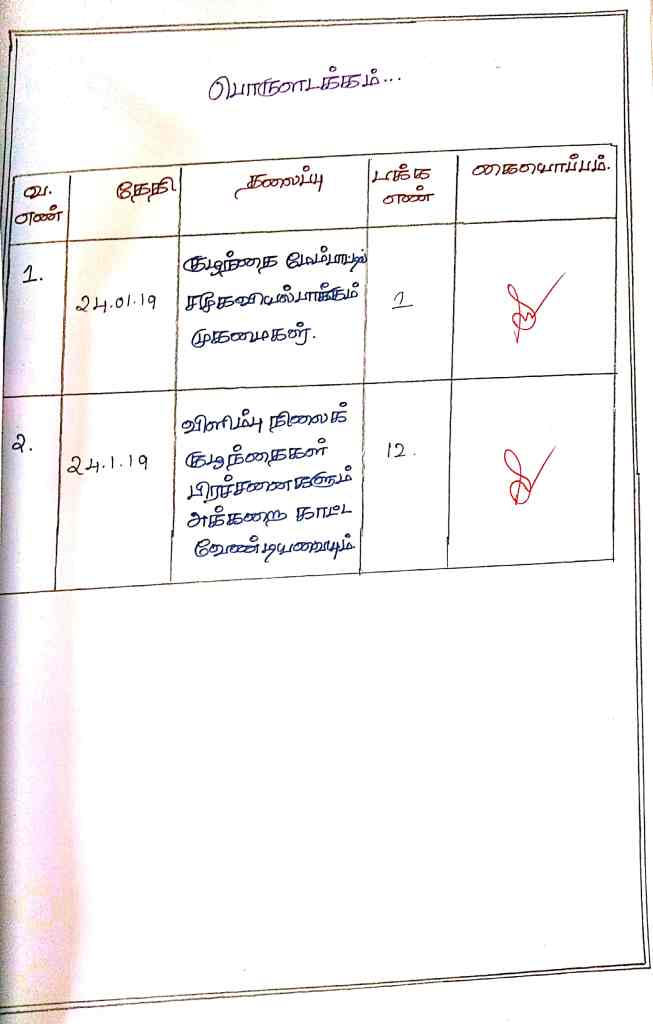 பொருளடக்கம்...
வ. எண் தேதி தலைப்பு பக்க எண் கையொப்பம்.
1. 24.01.19 குழந்தை மேம்பாட்டில் 1
சமூகவியல்பாக்கும்
முகமைகள்.
2. 24.1.19 விளிம்பு நிலைக் 12.
குழந்தைகள்
பிரச்சனைகளும்
அக்கறை காட்ட
வேண்டியவையும்